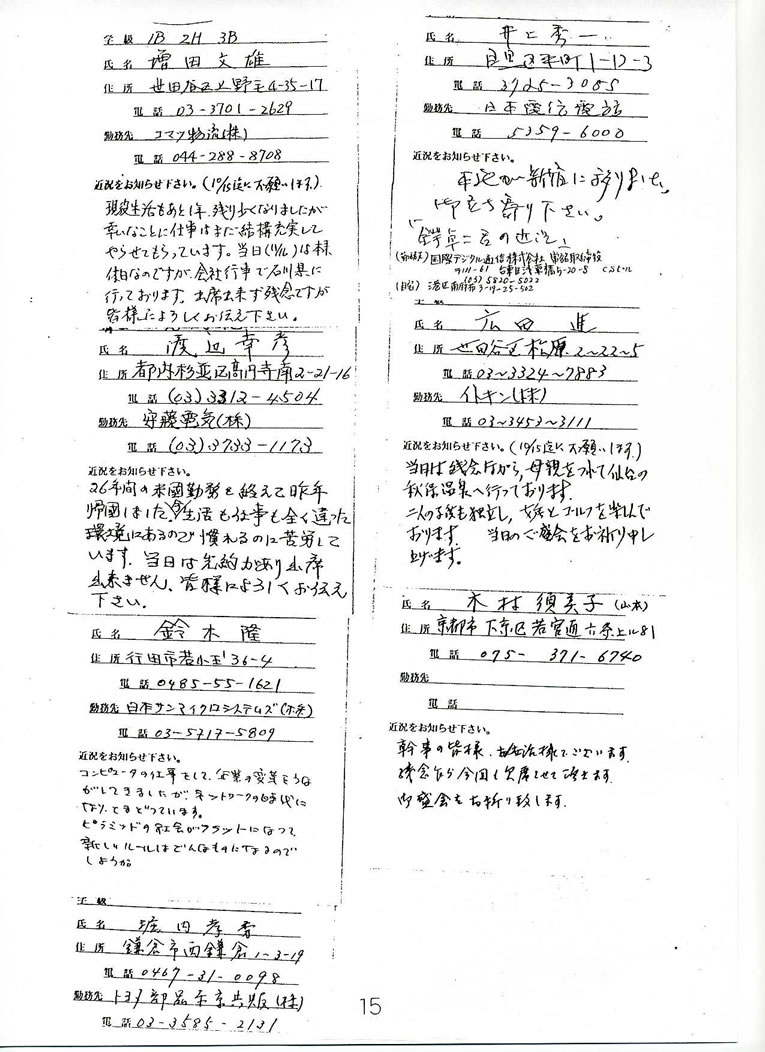 学級 1B 2H 3B
氏名 増田文雄
住所 世田谷区上野毛4-35-17
電話 03-3701-2629
勤務先 コマツ物流(株)
電話 044-288-8708
近況をお知らせ下さい。(10/15迄にお願いします。)
現役生活もあと1年、残り少くなりましたが
幸いなことに仕事はまだ結構充実して
やらせてもらっています。当日は本様
休日なのですが、会社行事で石川県に
行っております。出席出来ず残念ですが
皆様によろしくお伝え下さい。
氏名 渡辺幸彦
住所 都内杉並区高円寺南2-21-16
電話 (03)3312-4504
勤務先 安藤電気(株)
電話 (03)3733-1173
近況をお知らせ下さい。
26年間の米國勤務を終えて昨年
帰國しました。生活も仕事も全く違った
環境にあるので慣れるのに苦労して
います。当日は先約があり出席
出来ません、皆様によろしくお伝え
下さい。
氏名 鈴木隆
住所 行田市若小玉136-4
電話 0485-55-1621
勤務先 日本サンマイクロシステムズ(株)
電話 03-5717-5809
近況をお知らせ下さい。
コンピュータの仕事をして、企業の変革をうな
がしてきましたが、ネットワークの時代に
なり、とまどっています。
ピラミッドの社会がフラットになって
新しいルールはどんなものになるので
しょうか
学級
氏名 堀内孝
住所 鎌倉市西鎌倉1-3-19
電話 0467-31-0098
勤務先 トヨタ部品東京共販(株)
電話 03-3585-2131
氏名 井上秀一
住所 目黒区平町1-12-3
電話 3725-3055
勤務先 日本電信電話
電話 5359-6000
近況をお知らせ下さい。
本社が新宿に移りました。
御立ち寄り下さい。
「鈴木卓二君の近況」
(勤務先) 国際デジタル通信株式会社
〒111-61 台東区浅草橋5-20-8 CSビル
(03)5820-5022
(自宅) 港区南麻布3-19-25-502
氏名 広田進
住所 世田谷区松原2~22~5
電話 03~3324~7883
勤務先 イトキン(株)
電話 03~3453~3111
近況をお知らせ下さい。(10/15迄にお願いします。)
当日は残念乍ら、母親をつれて仙台の
秋保温泉へ行っております。
二人の子供も独立し、妻とゴルフを楽しんで
おります。 当日のご盛会をお祈り申し
上げます。
氏名 木村須美子(山本)
住所 京都市下京区若宮通六条上ル81
電話 075-371-6740
勤務先
電話
近況をお知らせ下さい。
幹事の皆様、お世話様でございます。
残念ながら今回も欠席させて頂きます。
御盛会をお祈り致します。
15